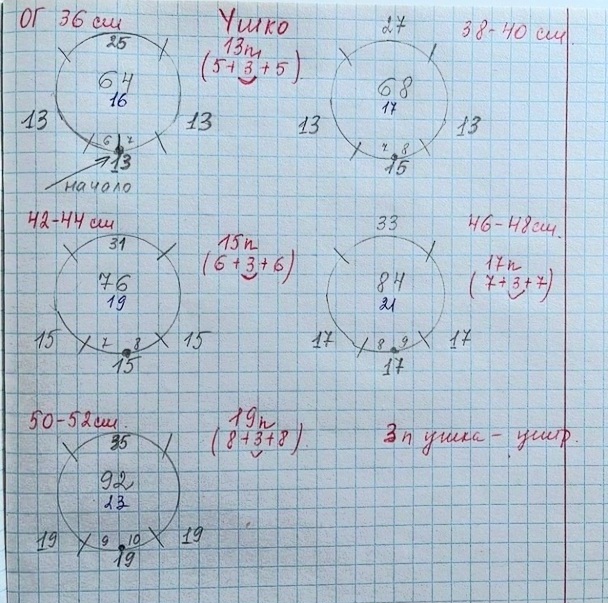 ОГ 36 см
Ушко
13п
(5+3+5)
25
64
16
13
13
6 7
13
начало
38-40 см.
27
68
17
13
13
7 8
15
42-44см
31
76
19
15
15
7 8
15
15п
(6+3+6)
46-48см.
33
84
21
17
17
8 9
17
17п
(7+3+7)
50-52см.
35
92
23
19
19
9 10
19
19п
(8+3+8)
3п ушка -